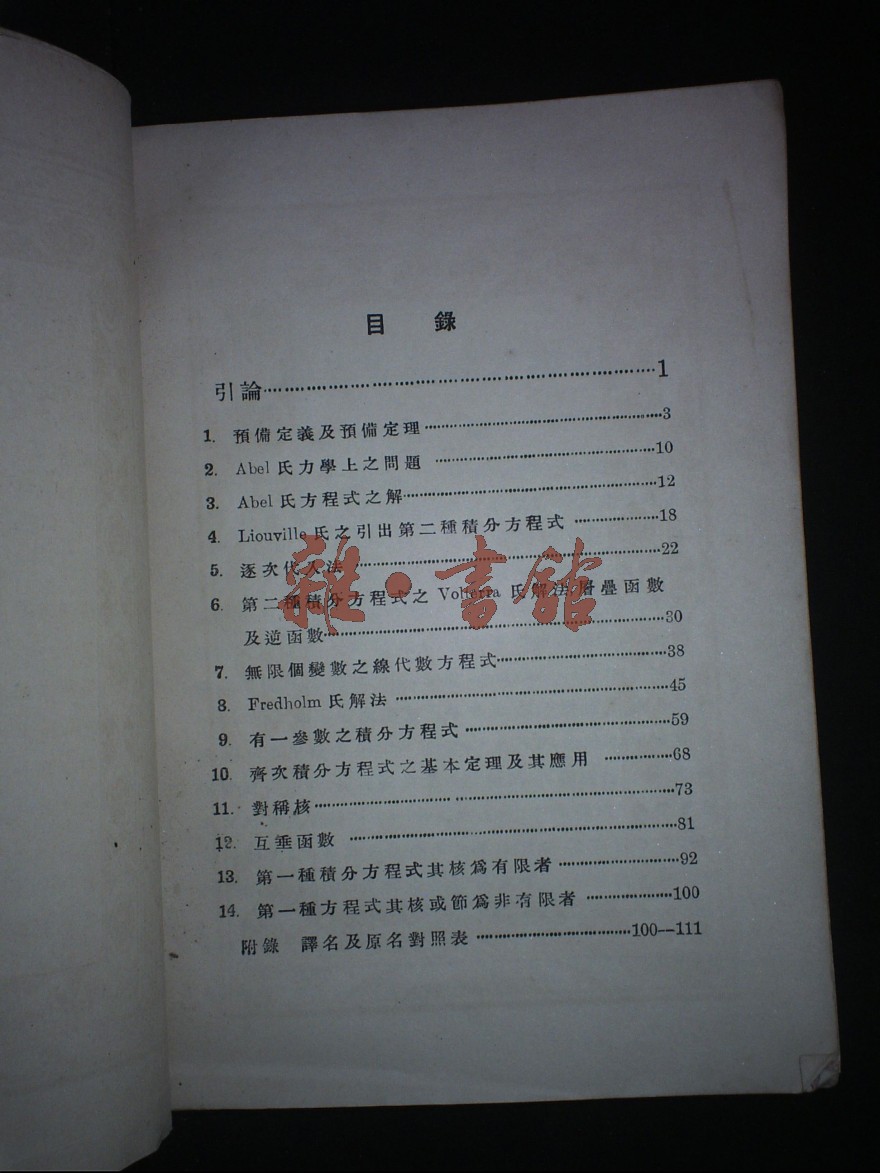 目 錄
引論 1
1. 預備定義及預備定理 3
2. Abel 氏力學上之問題 10
3. Abel 氏方程式之解 12
4. Liouville 氏之引出第二種積分方程式 18
5. 逐次代入法 22
6. 第二種積分方程式之 Volterra 氏解法.層疊函數
及逆函數 30
7. 無限個變數之線代數方程式 38
8. Fredholm 氏解法 45
9. 有一參數之積分方程式 59
10. 齊次積分方程式之基本定理及其應用 68
11. 對稱核 73
12. 互垂函數 81
13. 第一種積分方程式其核爲有限者 92
14. 第一種方程式其核或節爲非有限者 100
附錄 譯名及原名對照表 100--111
雜·書館